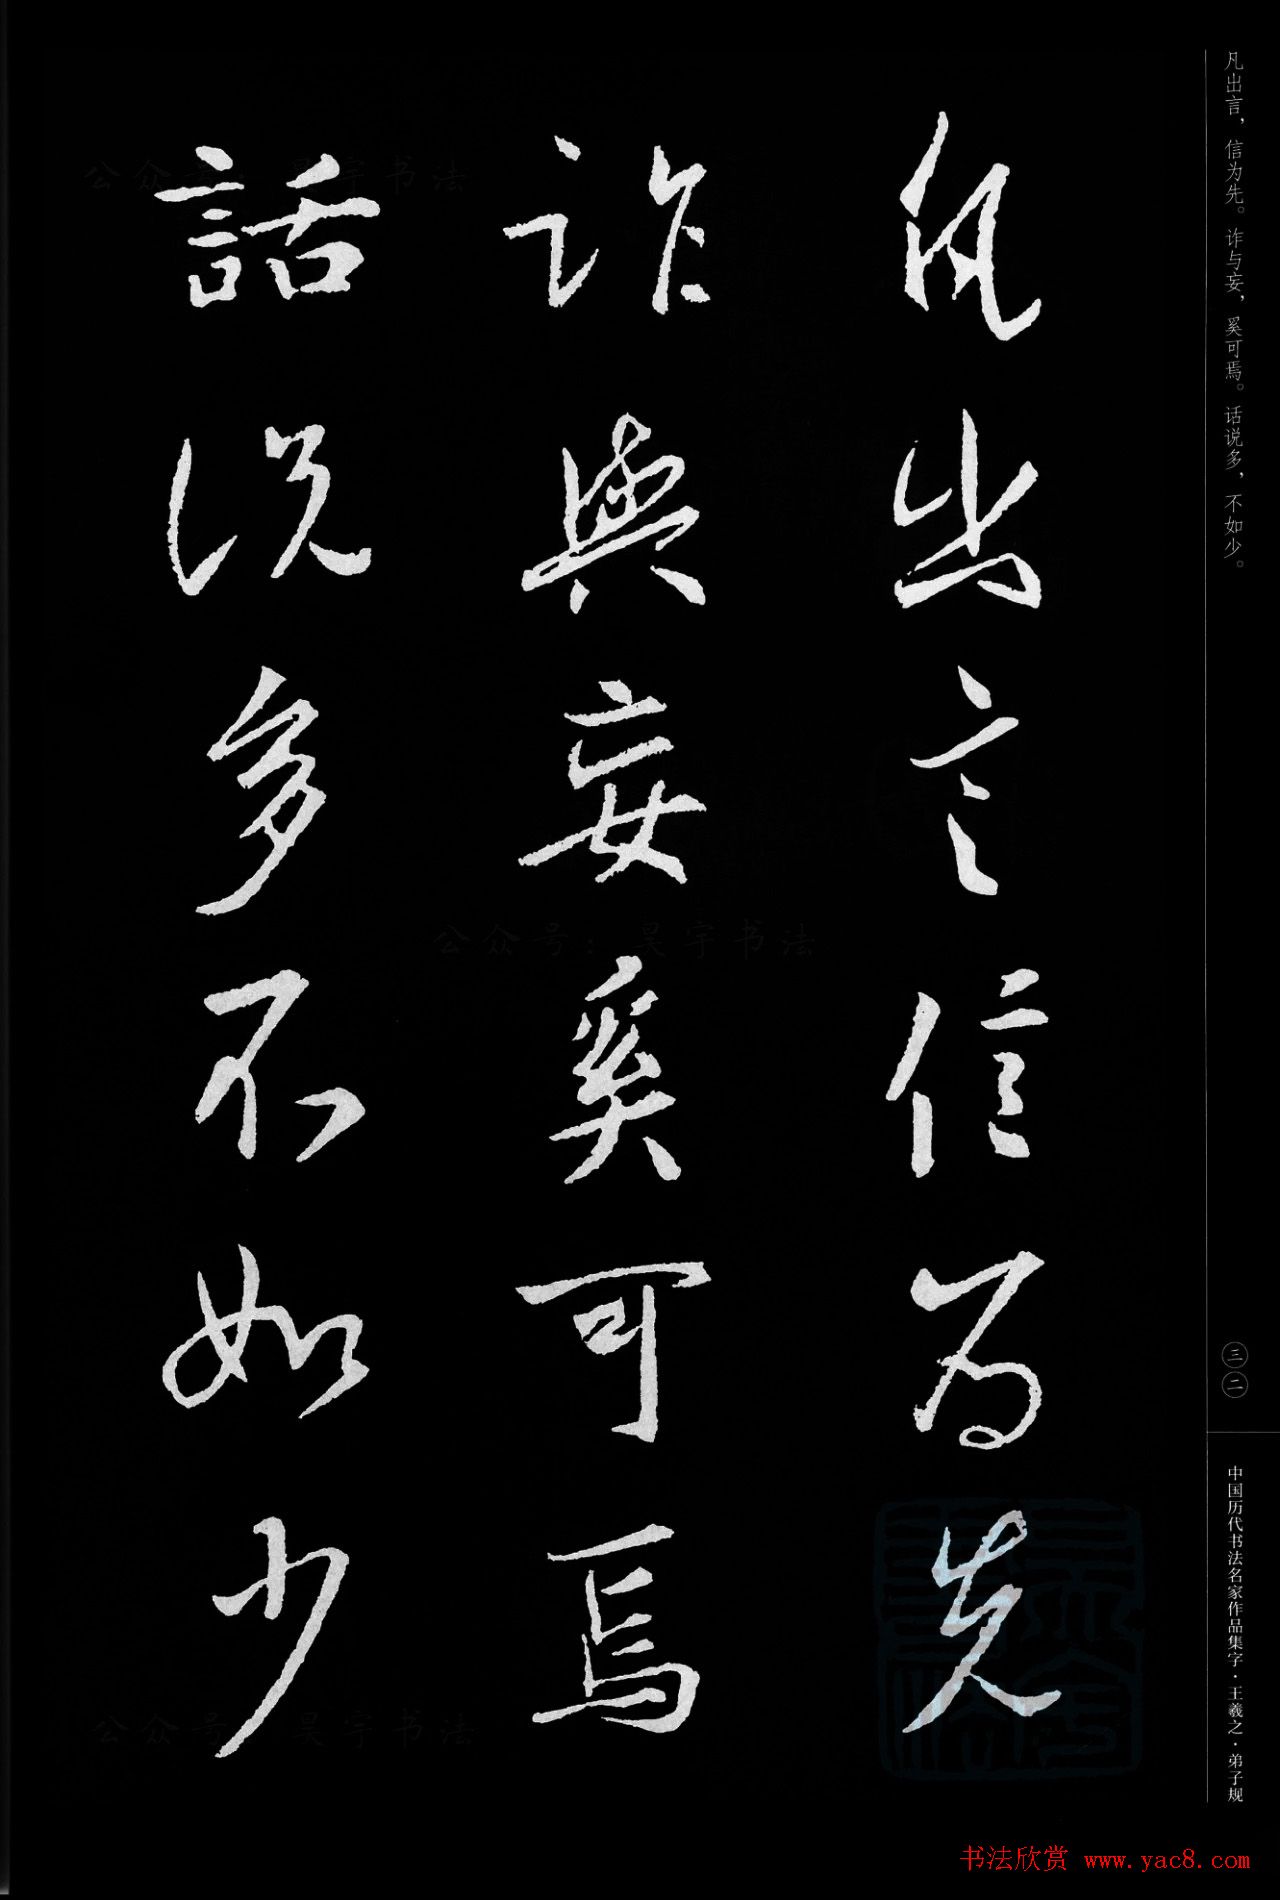 凡出言信为先
詐與妄奚可焉
話说多不如少
凡出言，信为先。诈与妄，奚可焉。话说多，不如少。
三二
中国历代书法名家作品集字·王羲之·弟子规
公众号：昊宇书法
公众号：昊宇书法
公众号：昊宇书法
书法欣赏 www.yac8.com